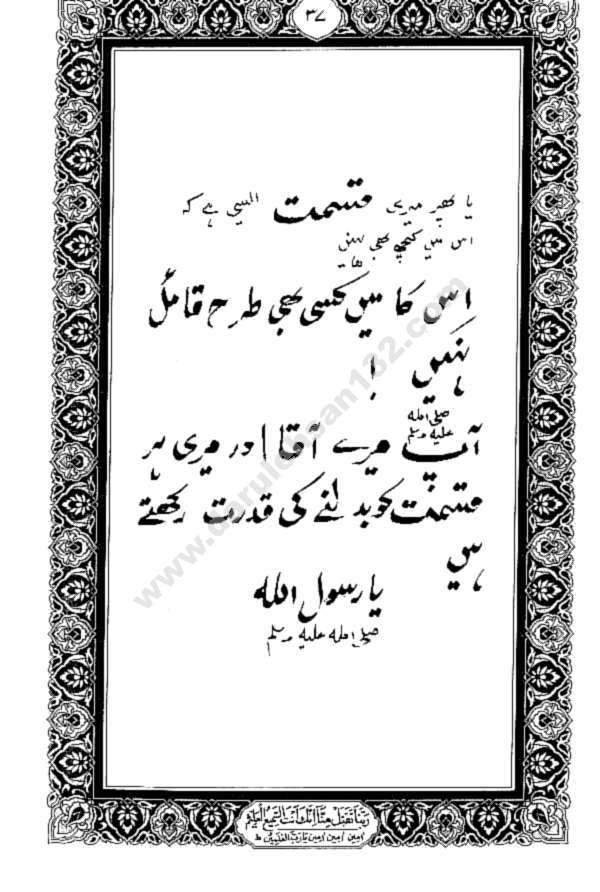 ۳۷
یا پھر میری قسمت ایسی ہے کہ
اس میں کچھ بھی نہیں
اس کا میں کسی بھی طرح قائل
نہیں !
آپ صلی اللہ علیہ وسلم میرے آقا اور میری ہر
قسمت کو بدلنے کی قدرت رکھتے
ہیں
یا رسول اللہ
صلی اللہ علیہ وسلم
www.darulehsan132.com
ربنا تقبل منا انك انت السميع العليم
امين امين امين يا رب العلمين